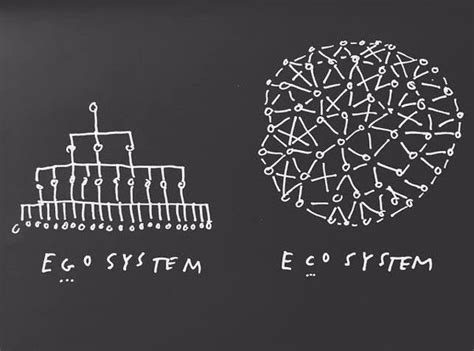 EGOSYSTEM
ECOSYSTEM